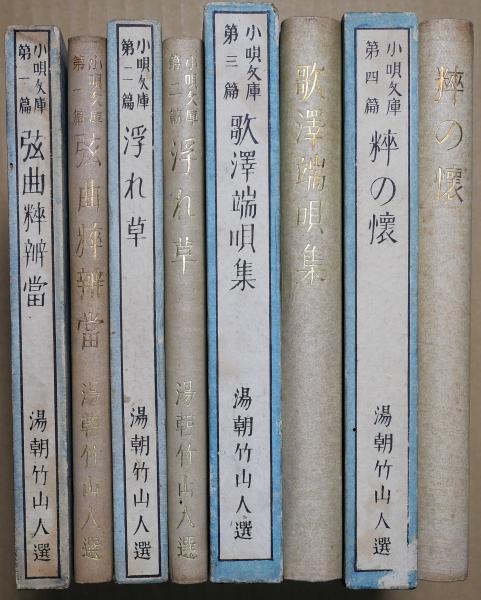 小唄文庫
第一篇
弦曲粹辨當
湯朝竹山人選
小唄文庫
第一篇
弦曲粹辨當
湯朝竹山人選
小唄文庫
第二篇
浮れ草
湯朝竹山人選
小唄文庫
第二篇
浮れ草
湯朝竹山人選
小唄文庫
第三篇
歌澤端唄集
湯朝竹山人選
歌澤端唄集
小唄文庫
第四篇
粹の懷
湯朝竹山人選
粹の懷